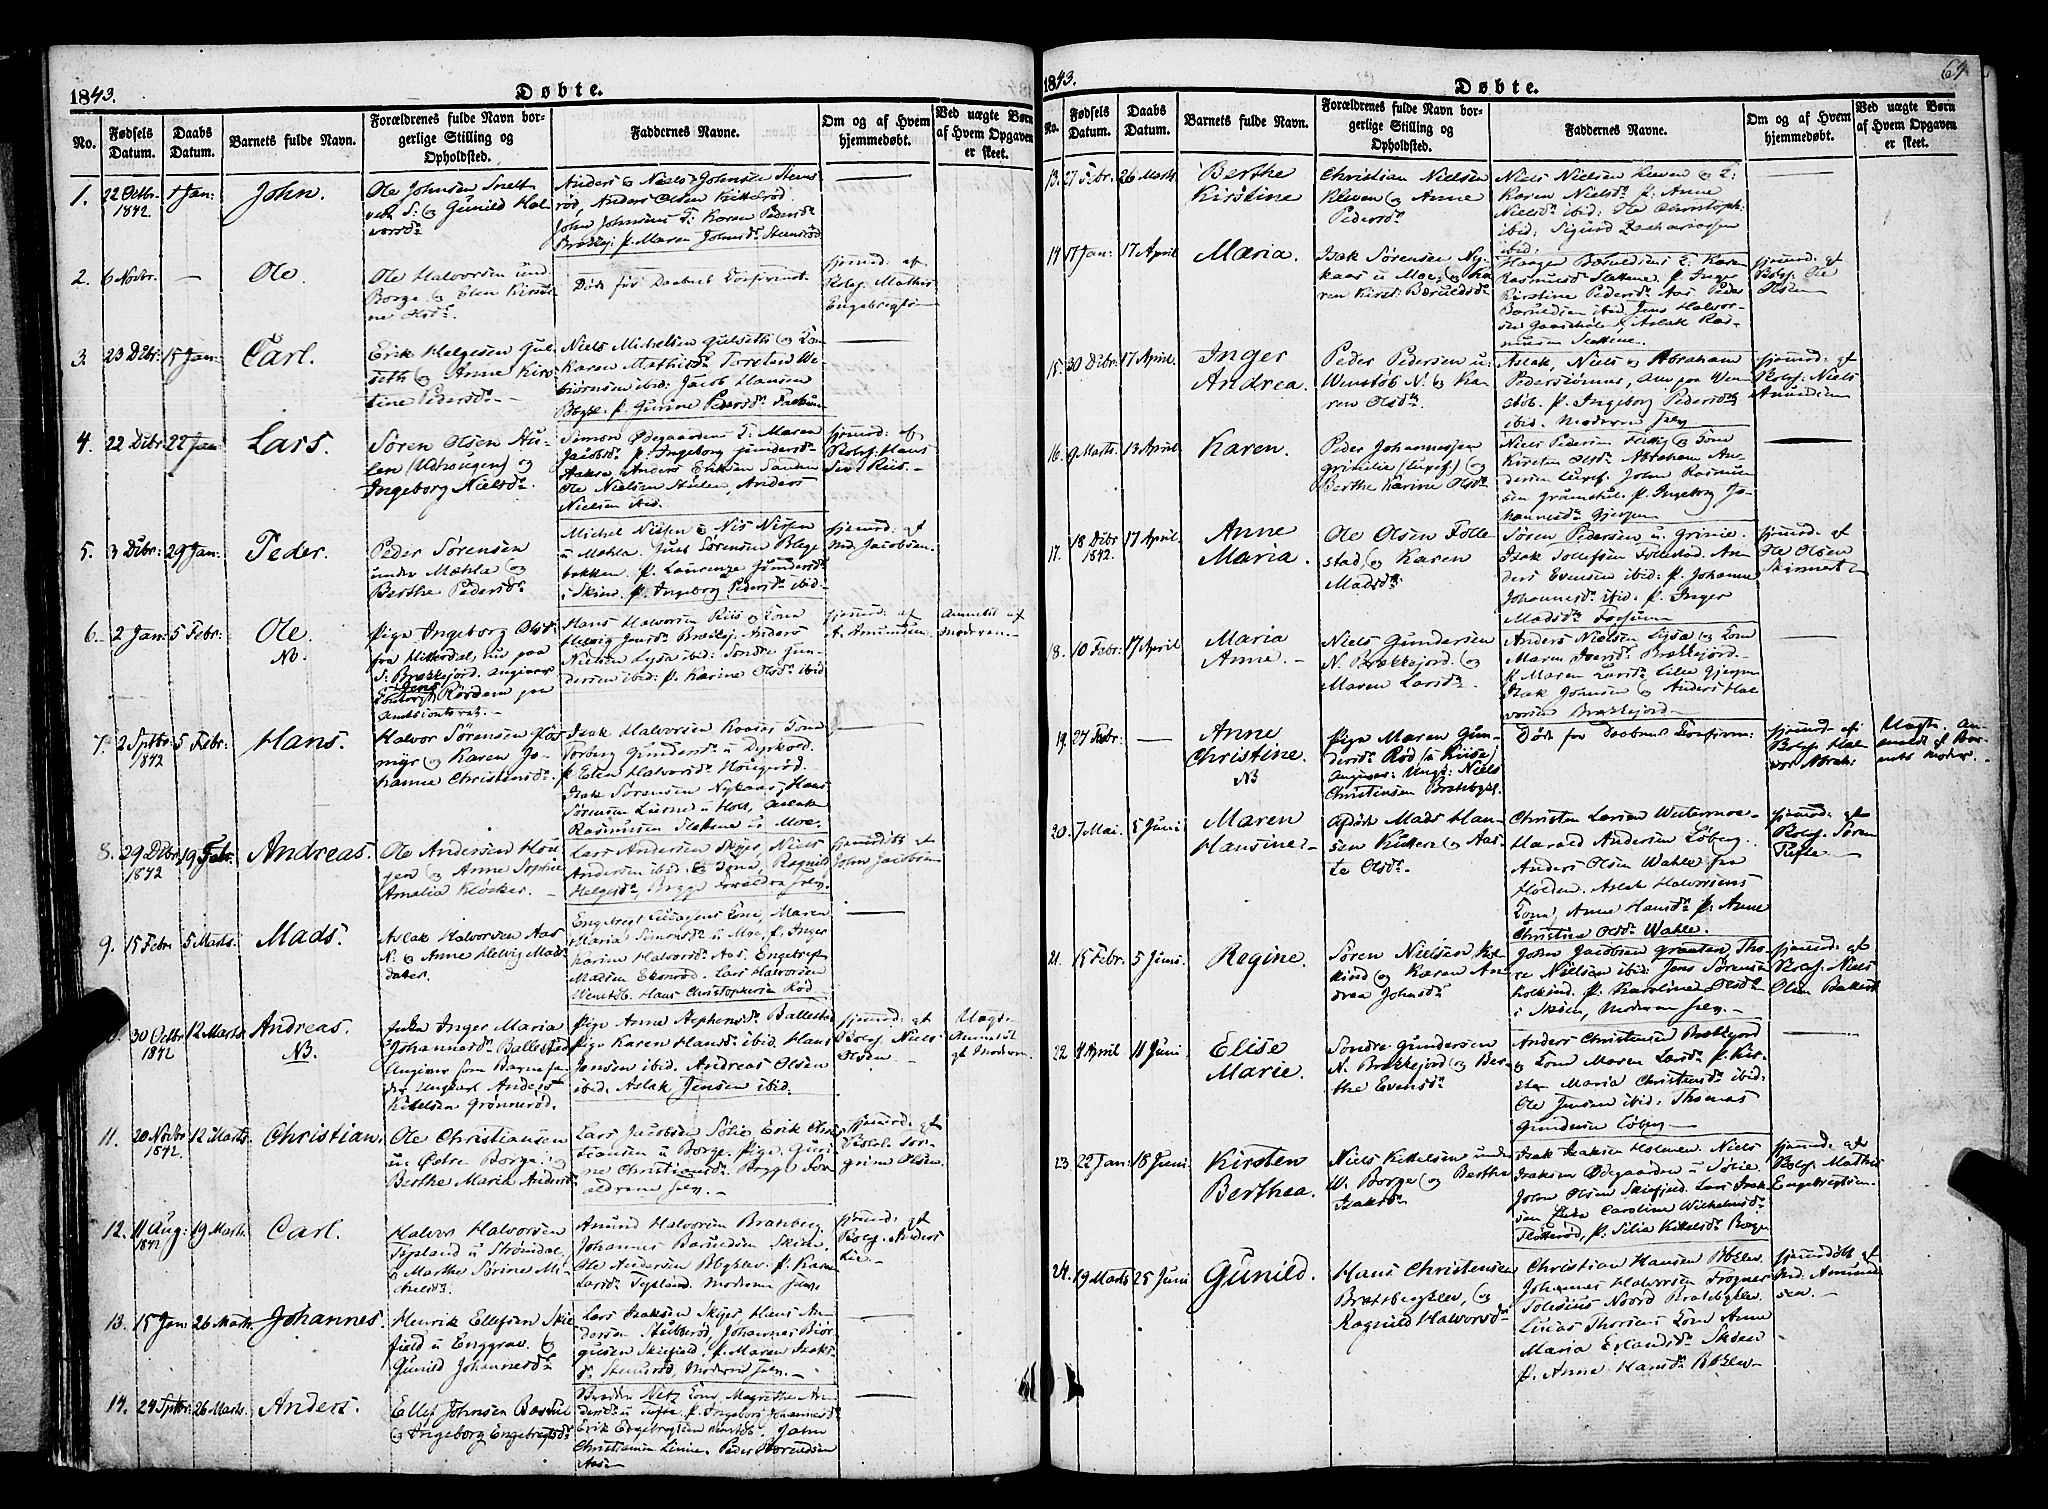 1843.
Døbte.
No.
Fødsels Datum.
Daabs Datum.
Barnets fulde Navn.
Forældrenes fulde Navn bor-
gerlige Stilling og
Opholdsted.
Faddernes Navne.
Om og af Hvem
hjemmedøbt.
Ved uægte Børn
af Hvem Opgaven
er skeet.
1. 22 Octbr. 1842 1 Jan: John.
Ole Johnsen
S: og Gunild Hal-
vorsd.
Anders og Niels Johnsen Steens-
rød, Anders Olsen Kittelrød.
John Johnsens T: Karen Pedersd.
Brække; p. Maren Johnsd. Steensrød
2. 6 Novbr. — Ole.
Ole Halvorsen und.
Borge og Elen Kirsti-
ne Olsd.
Døde før Daabens Confirmat.
hjemmd: af
Kolgs. Mathis
Engebregtsen
3. 23 Dcbr: 15 Jan: Carl.
Erik Helgesen Gul-
seth og Anne Kirs-
tine Pedersd. —
Niels Michelsen Gulseth og Kona
Karen Mathisd. Torsten We-
biørnsen ibid: Jacob Hansen
Bøgle. p. Gurine Pedersd.
4. 22 Dcbr: 22 Jan: Lars.
Søren Olsen Hu-
len og
Ingeborg Nielsd.
Simon Ødegaardens T: Maren
Jacobsd. p. Ingeborg Gundersd.
Anders Eriksen Sanden
Ole Nielsen Hulen, Anders
Nielsen ibid.
hjemmd: af
Hans
5. 3 Dcbr: 29 Jan: Peder.
Peder Sørensen
under Mæhla og
Berthe Pedersd.
Michel Nilsen og Nis Nissen
u Mæhla. Sørensen Blege-
bakken. p. Laurenze Gundersd.
i Skien. p. Ingeborg Pedersd. ibid.
hjemmd: af
Jacobsen.
6. 2 Jan: 5 Febr: Ole. NB.
Pige Ingeborg Olsd.
fra Hitterdal, nu paa
S: Brækkejord. angiver
Hans Halvorsen Riis og Kona
Helvig Jensd. Brække, Anders
Nielsen Lysa ibid: Sondre Gun-
dersen ibid: p. Karine Olsd. ibid
hjemmd: af
A. Amundsen
Anmeldt af
Moderen—
7. 2 Sptbr: 1842 5 Febr: Hans.
Halvor Sørensen
myr og Karen Jo-
hanne Christensd.
Isak Halvorsen Kona
Torberg Gundersd. u Dyrkord.
p. Elen Halvorsd. Hougerød.
Isak Sørensen Nykaas, Hans
Sørensen Lierne u Holt, Aslak
Rasmusen Slettene u Moe.
8. 29 Dcbr 1842 19 Febr. Andreas.
Ole Andersen Hou-
gen og Anne Sophie
Amalia Kløcker. —
Lars Andersen Skijes, Niels
Andersen ibid: & Kona, Ragnild
Helgesd. Begge Forældre selv.
hjemmdøbt af
John Jacobsen
9. 15 Febr 5 Marts. Mads.
Aslak Halvorsen Aas
N. & Anne Helvig Mads-
datter.
Kone, Maren
Maria Simonsd. u Moe, p. Inger
Karine Halvorsd. Aas. Engebregt
Madsen Ekornrød. Lars Halvorsen
Wenstøb. Hans Christophersen Rød
30 Octbr 1842 12 Marts Andreas. NB.
Inger Maria
Johannesd. Ballestad
Angiver som Barnefa-
der Ungkarl Anders
Kittelsen Grønnerød.
Pige Anne Stephensd. Ballestad
Pige Karen Hansd. ibid. Hans
Jensen ibid. Andreas Olsen
ibid. Aslak Jensen ibid.
hjemmd: af
Niels
Olsen.
Uægte
Anmeldt
af Moderen
11. 20 Novbr 1842. 12 Marts. Christian.
Ole Christiansen
u: Østre Borge: og
Berthe Maria Andersd.
Lars Jacobsen Solie, Erik Chris-
tiansen u Borge. Pige Guri-
ne Christiansd. Begge For-
ældrene selv. —
hjemmd: af
Tor-
grim Olsen.
12. 11 Aug: 1842 19 Marts. Carl.
Halvor Halvorsen
Tysland u Strømdal,
& Marthe Sørine Mi-
chelsd.
Amund Halvorsen Bratsberg
Johannes Baruldsen Skien.
Ole Andersen Bøgklev. p. Karen
Larsd. Tysland. Moderen selv.
hjemmd: af
Kolgs. Anders
Lie.—
13. 15 Jan 26 Marts. Johannes.
Henrik Ellefsen Skie-
fjeld u Enggrav. og
Gunild Johannesd.
Lars Isaksen Skijes Hans An-
dersen Stubberød, Johannes Biør-
gusen Skiefjeld, p. Maren Isaks-
d. Steensrød, Moderen selv. —
14. 24 Sptbr: 26 Marts. Anders.
Ellef Johnsen
og Ingeborg Engebregtsd.
Kone Magrethe An-
dersd. u Tufte. p. Ingeborg Johannesd.
Erik Engebregtsen Wenstøb. John
Christiansen Peder Børuldsen
Aasen
1843.
Døbte.
64
No.
Fødsels Datum.
Daabs Datum.
Barnets fulde Navn.
Forældrenes fulde Navn bor-
gerlige Stilling og
Opholdsted.
Faddernes Navne.
Om og af Hvem
hjemmedøbt.
Ved uægte Børn
af Hvem Opgaven
er skeet.
13. 27 Febr. 26 Marts Berthe
Kirstine
Christian Nielsen
Kleven og Anne
Pedersd.
Niels Nielsen Kleven og K:
Karen Nielsd. p. Anne
Nielsd. ibid: Ole Christoph:
ibid: Sigurd Zachariasen
ibid.
14 17 Jan: 17 April Maria.
Isak Sørensen Ny-
kaas u Moe, og Ka-
ren Kirst: Bæruldsd.
Haagen Bæruldsens K: Karen
Rasmusd. Slettene. p. Inger
Kirstine Pedersd. Aas Peder
Baruldsen ibid. Jens Halvor-
sen Aslak Ras-
musen Slettene.
hjemmd: af
Kolgs. Ole
Olsen—
15. 30 Dcbr: 17 April. Inger
Andrea.
Peder Pedersen u:
Wenstøb N. og Ka-
ren Olsd.
Aslak, Niels og Abraham
Pedersønner, Aas paa Wen-
støb. p. Ingeborg Pedersd.
ibid. Moderen selv
hjemmd: af
Kolgs. Niels
Amundsen
16. 9 Marts. 13 April. Karen.
Peder Johannesen
Grinilia og
Berthe Karine Olsd.
Niels Pedersen og Kona
Kirsten Olsd. Abraham An-
dersen John Rasmus-
sen p. Ingeborg Jo-
hannesd. Gjerpen
17. 18 Dcbr 1842. 17 April. Anne
Maria.
Ole Olsen Folle-
stad og Karen
Madsd.
Søren Pedersen u. Grinie.
Isak Tollefsen Follestad. An-
ders Evensen ibid: p. Johanne
Johannesd. ibid. p. Inger
Madsd. Fossum
hjemmd: af
Ole Olsen
18. 10 Febr. 17 April Maria
Anne. —
Niels Gundersen
N. Brækkejord. og
Maren Larsd.
Anders Nielsen Lysa og Kona
Maren Iversd. Brækkejord.
p. Maren Larsd. Lille Gjerpen
Isak Johnsen og Anders Hal-
vorsen Brækkejord—
19. 27 Febr: — Anne
Christine. NB
Pige Maren Gun-
dersd. Rød
Angiver: Ungk: Niels
Christensen Bratsbgkl.
Døde før Daabens Confirm:
hjemmd: af
Kolgs. Hal-
vor Abrah:
Uægte. An-
meldt af Bar-
nets Moder. —
20. 7 Mai. 5 Juni Maren
Hansine. —
Mads Han-
sen og Aas-
te Olsd.
Christen Larsen Westermoe—
Harald Andersen Løberg.
Anders Olsen Wahle fra
Holden. Aslak Halvorsens
Kona, Anne Hansd. p. Anne
Christine Olsd. Wahle.
hjemmd: af
Kolgs. Søren
21. 15 Febr. 5 Juni. Regine.
Søren Nielsen Kol-
kind og Karen An-
drea Johnsd.
John Jacobsen Graaten, Tho-
re Nielsen ibid. Jens Sørensen
Kolkind. p. Karoline Olsd.
i Skien, Moderen selv.
hjemmd: af
Kolgs. Niels
Olsen Bakken
22. 4 April 11 Juni Elise
Marie.
Sondre Gundersen
N. Brækkejord og Ber-
the Evensd.
Anders Christensen Brækkejord
og Kona Maren Larsd. p. Kir-
sten Maria Christensd. ibid:
Ole Jensen ibid. Thomas
Gundersen Løberg —
23. 22 Jan: 18 Juni Kirsten
Berthea.
Niels Kittelsen under
W. Borge og Berthe
Isaksd.
Isak Isaksen Holmen. Niels
Isaksen Ødegaarden u Solie.
John Olsen Skiefjeld. Lars Isak-
sen Caroline Wilhelmsd.
Fløtterød, p. Silia Kittelsd. Borge
hjemmd: af
Kolgs. Mathis
Engebregtsen.
24. 19 Marts 25 Juni Gunild.
Hans Christensen
Bratsbergklev, og
Ragnild Halvorsd.
Christian Hansen Bøklev.
Johannes Halvorsen Frogner
Bratsbgklev.
Lucas Thorsens Kona Anne
Maria Erlandsd. Skien
p. Anne Hansd. Bøklev—
hjemmdøbt af
Amund-
sen. —